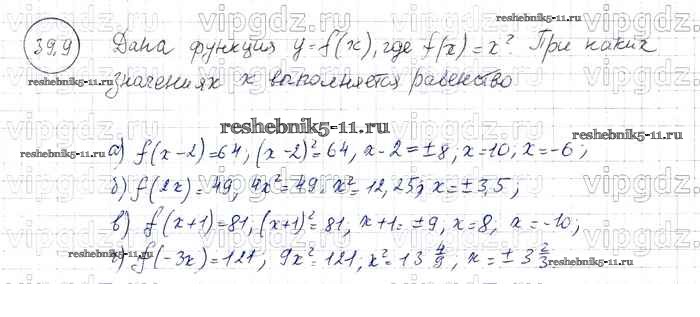 39.9 Дана функция y=f(x), где f(x)=x². При каких
значениях x выполняется равенство
reshebnik5-11.ru
а) f(x-2)=64, (x-2)²=64, x-2=±8, x=10, x=-6;
б) f(2x)=49, 4x²=49, x²=12,25; x=±3,5;
в) f(x+1)=81, (x+1)²=81, x+1=±9, x=8, x=-10;
г) f(-3x)=121; 9x²=121, x²=13 4/9; x=±3 2/3